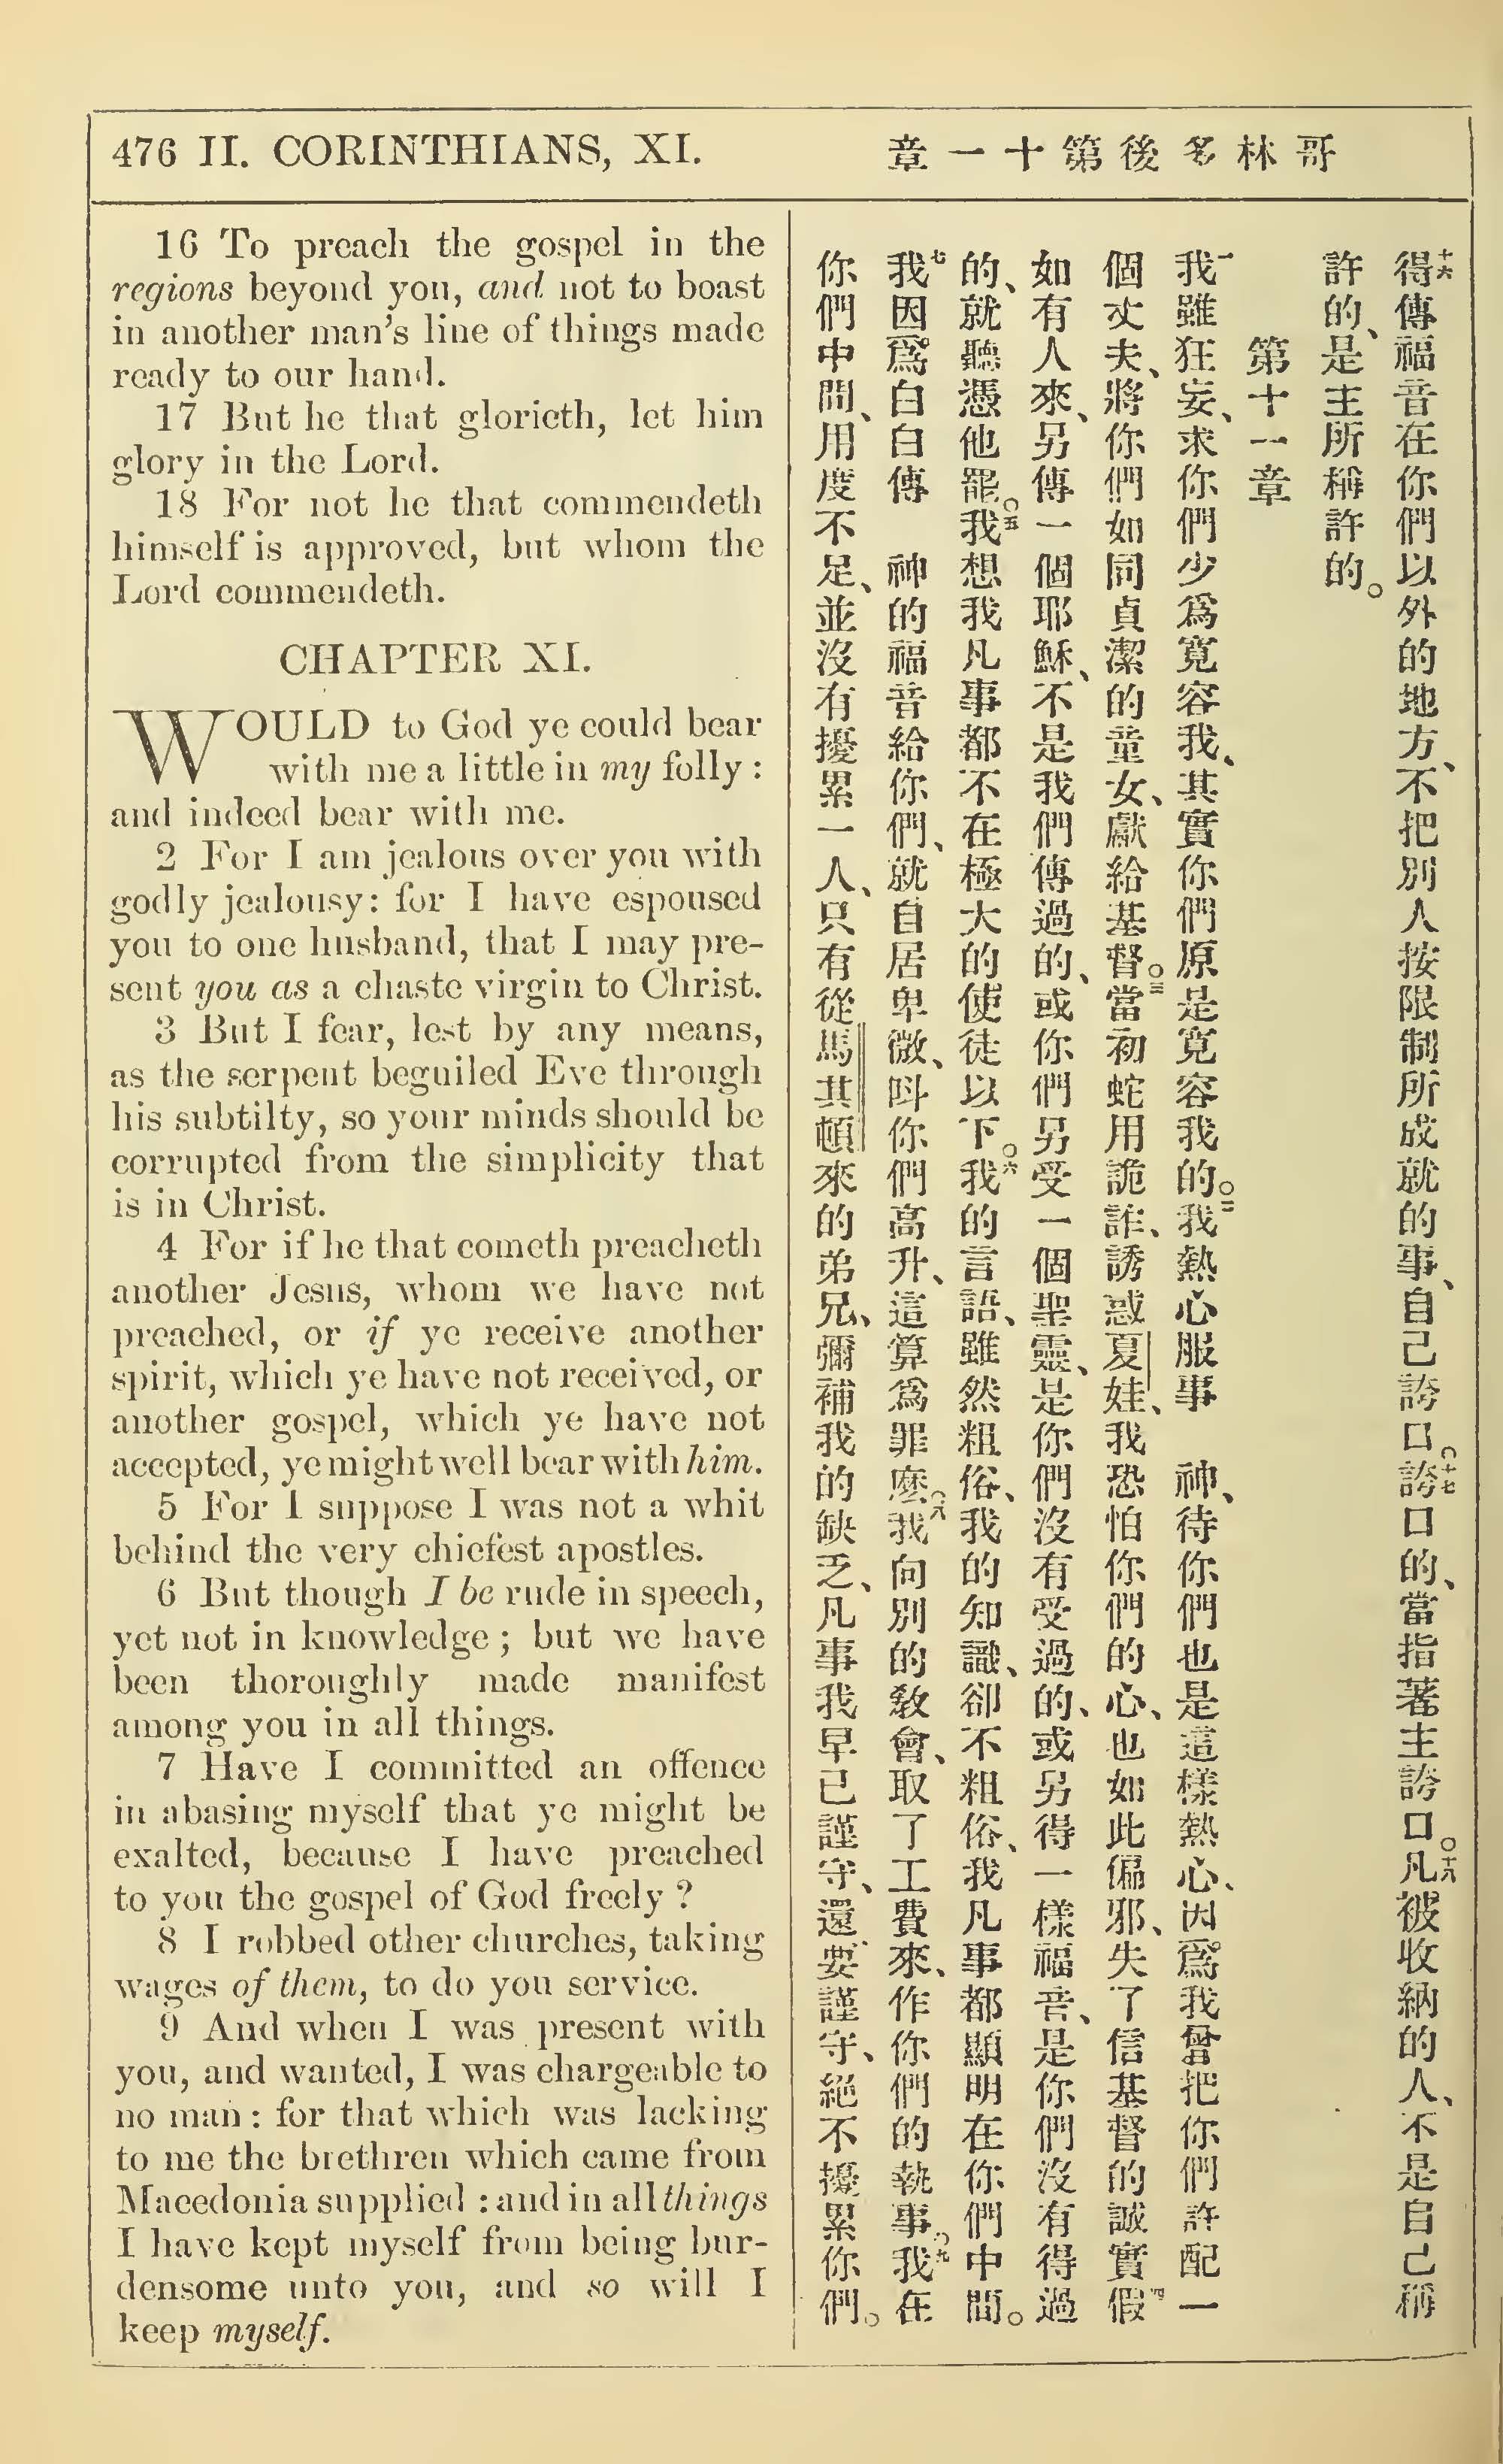 476 II. CORINTHIANS, XI.
章一十第後多林哥
16 To preach the gospel in the
regions beyond you, and not to boast
in another man's line of things made
ready to our hand.
17 But he that glorieth, let him
glory in the Lord.
18 For not he that commendeth
himself is approved, but whom the
Lord commendeth.
CHAPTER XI.
WOULD to God ye could bear
with me a little in my folly :
and indeed bear with me.
2 For I am jealous over you with
godly jealousy: for I have espoused
you to one husband, that I may pre-
sent you as a chaste virgin to Christ.
3 But I fear, lest by any means,
as the serpent beguiled Eve through
his subtilty, so your minds should be
corrupted from the simplicity that
is in Christ.
4 For if he that cometh preacheth
another Jesus, whom we have not
preached, or if ye receive another
spirit, which ye have not received, or
another gospel, which ye have not
accepted, ye might well bear with him.
5 For I suppose I was not a whit
behind the very chiefest apostles.
6 But though I be rude in speech,
yet not in knowledge ; but we have
been thoroughly made manifest
among you in all things.
7 Have I committed an offence
in abasing myself that ye might be
exalted, because I have preached
to you the gospel of God freely ?
8 I robbed other churches, taking
wages of them, to do you service.
9 And when I was present with
you, and wanted, I was chargeable to
no man : for that which was lacking
to me the brethren which came from
Macedonia supplied : and in all things
I have kept myself from being bur-
densome unto you, and so will I
keep myself.
十六得傳福音在你們以外的地方、不把別人按限制所成就的事、自己誇口。十七誇口的、當指著主誇口。十八凡被收納的人、不是自己稱
許的、是主所稱許的。
第十一章
一我雖狂妄、求你們少爲寬容我、其實你們原是寬容我的。二我熱心服事 神、待你們也是這樣熱心、因爲我曾把你們許配一
個丈夫、將你們如同貞潔的童女、獻給基督。三當初蛇用詭詐、誘惑夏娃、我恐怕你們的心、也如此偏邪、失了信基督的誠實四假
如有人來、另傳一個耶穌、不是我們傳過的、或你們另受一個聖靈、是你們沒有受過的、或另得一樣福音、是你們沒有得過
的、就聽憑他罷。五我想我凡事都不在極大的使徒以下。六我的言語、雖然粗俗、我的知識、卻不粗俗、我凡事都顯明在你們中間。
七我因爲白白傳 神的福音給你們、就自居卑微、呌你們高升、這算爲罪麼。八我向別的敎會、取了工費來、作你們的執事。九我在
你們中間、用度不足、並沒有擾累一人、只有從馬其頓來的弟兄、彌補我的缺乏、凡事我早已謹守、還要謹守、絕不擾累你們。